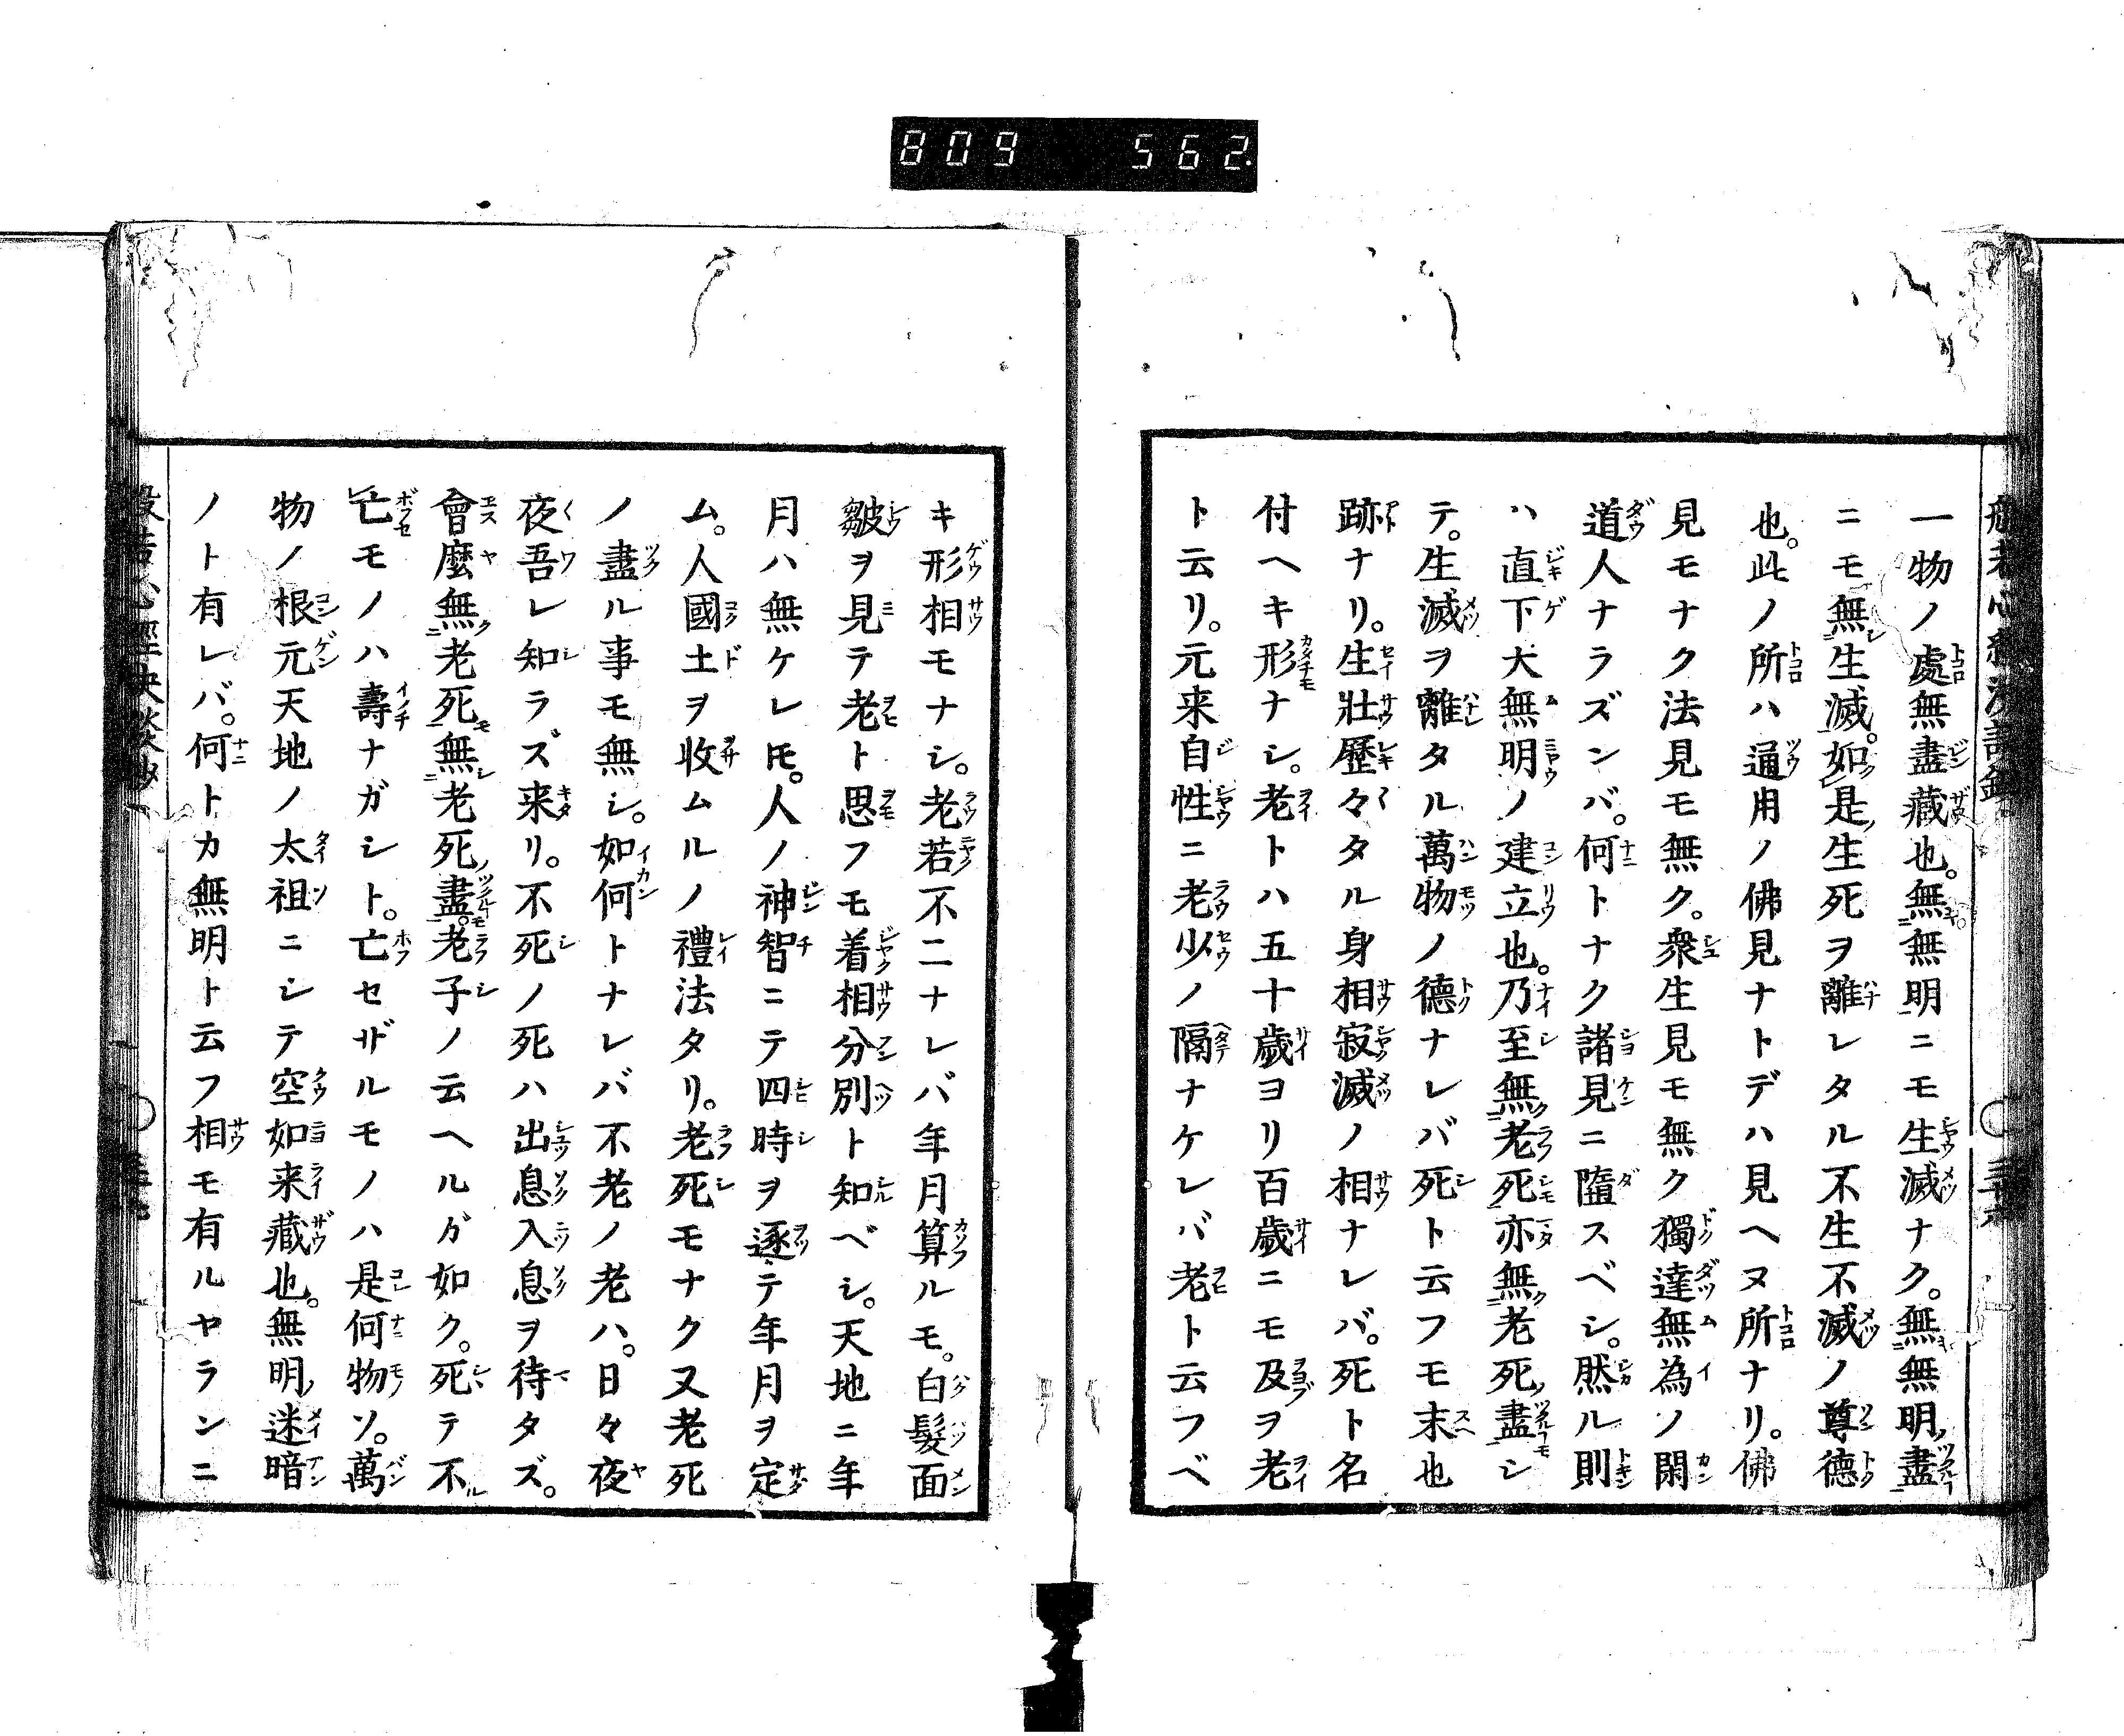 809 562
一物ノ處無盡藏也。無無明ニモ生滅ナク。無無明盡
ニモ無生滅。如是生死ヲ離レタル不生不滅ノ尊德
也。此ノ所ハ通用ノ佛見ナトデハ見ヘヌ所ナリ。佛
見モナク法見モ無ク。衆生見モ無ク獨達無為ソノ閑
道人ナラズンバ。何トナク諸見ニ墮スベシ。然ル則
ハ直下大無明ノ建立也。乃至無老死亦無老死盡シ
テ。生滅ヲ離タル萬物ノ德ナレバ死ト云フモ末也
跡ナリ。生壯歷々タル身相寂滅ノ相ナレバ。死ト名
付ヘキ形ナシ。老トハ五十歲ヨリ百歲ニモ及ヲ老
ト云リ。元来自性ニ老少ノ隔ナケレバ老ト云フベ
キ形相モナシ。老若不二ナレバ年月算ルモ。白髮面
皺ヲ見テ老ト思フモ着相分別ト知ベシ。天地ニ年
月ハ無ケレ𪜈。人ノ神智ニテ四時ヲ逐テ年月ヲ定
ム。人國土ヲ收ムルノ禮法タリ。老死モナク又老死
ノ盡ル事モ無シ。如何トナレバ不老ノ老ハ。日々夜
夜吾レ知ラズ来リ。不死ノ死ハ出息入息ヲ待タズ。
會麼無老死無老死盡。老子ノ云ヘルガ如ク。死テ不
亡モノハ壽ナガシト。亡セザルモノハ是何物ソ。萬
物ノ根元天地ノ太祖ニシテ空如来藏也。無明迷暗
ノト有レバ。何トカ無明ト云フ相モ有ルヤランニ